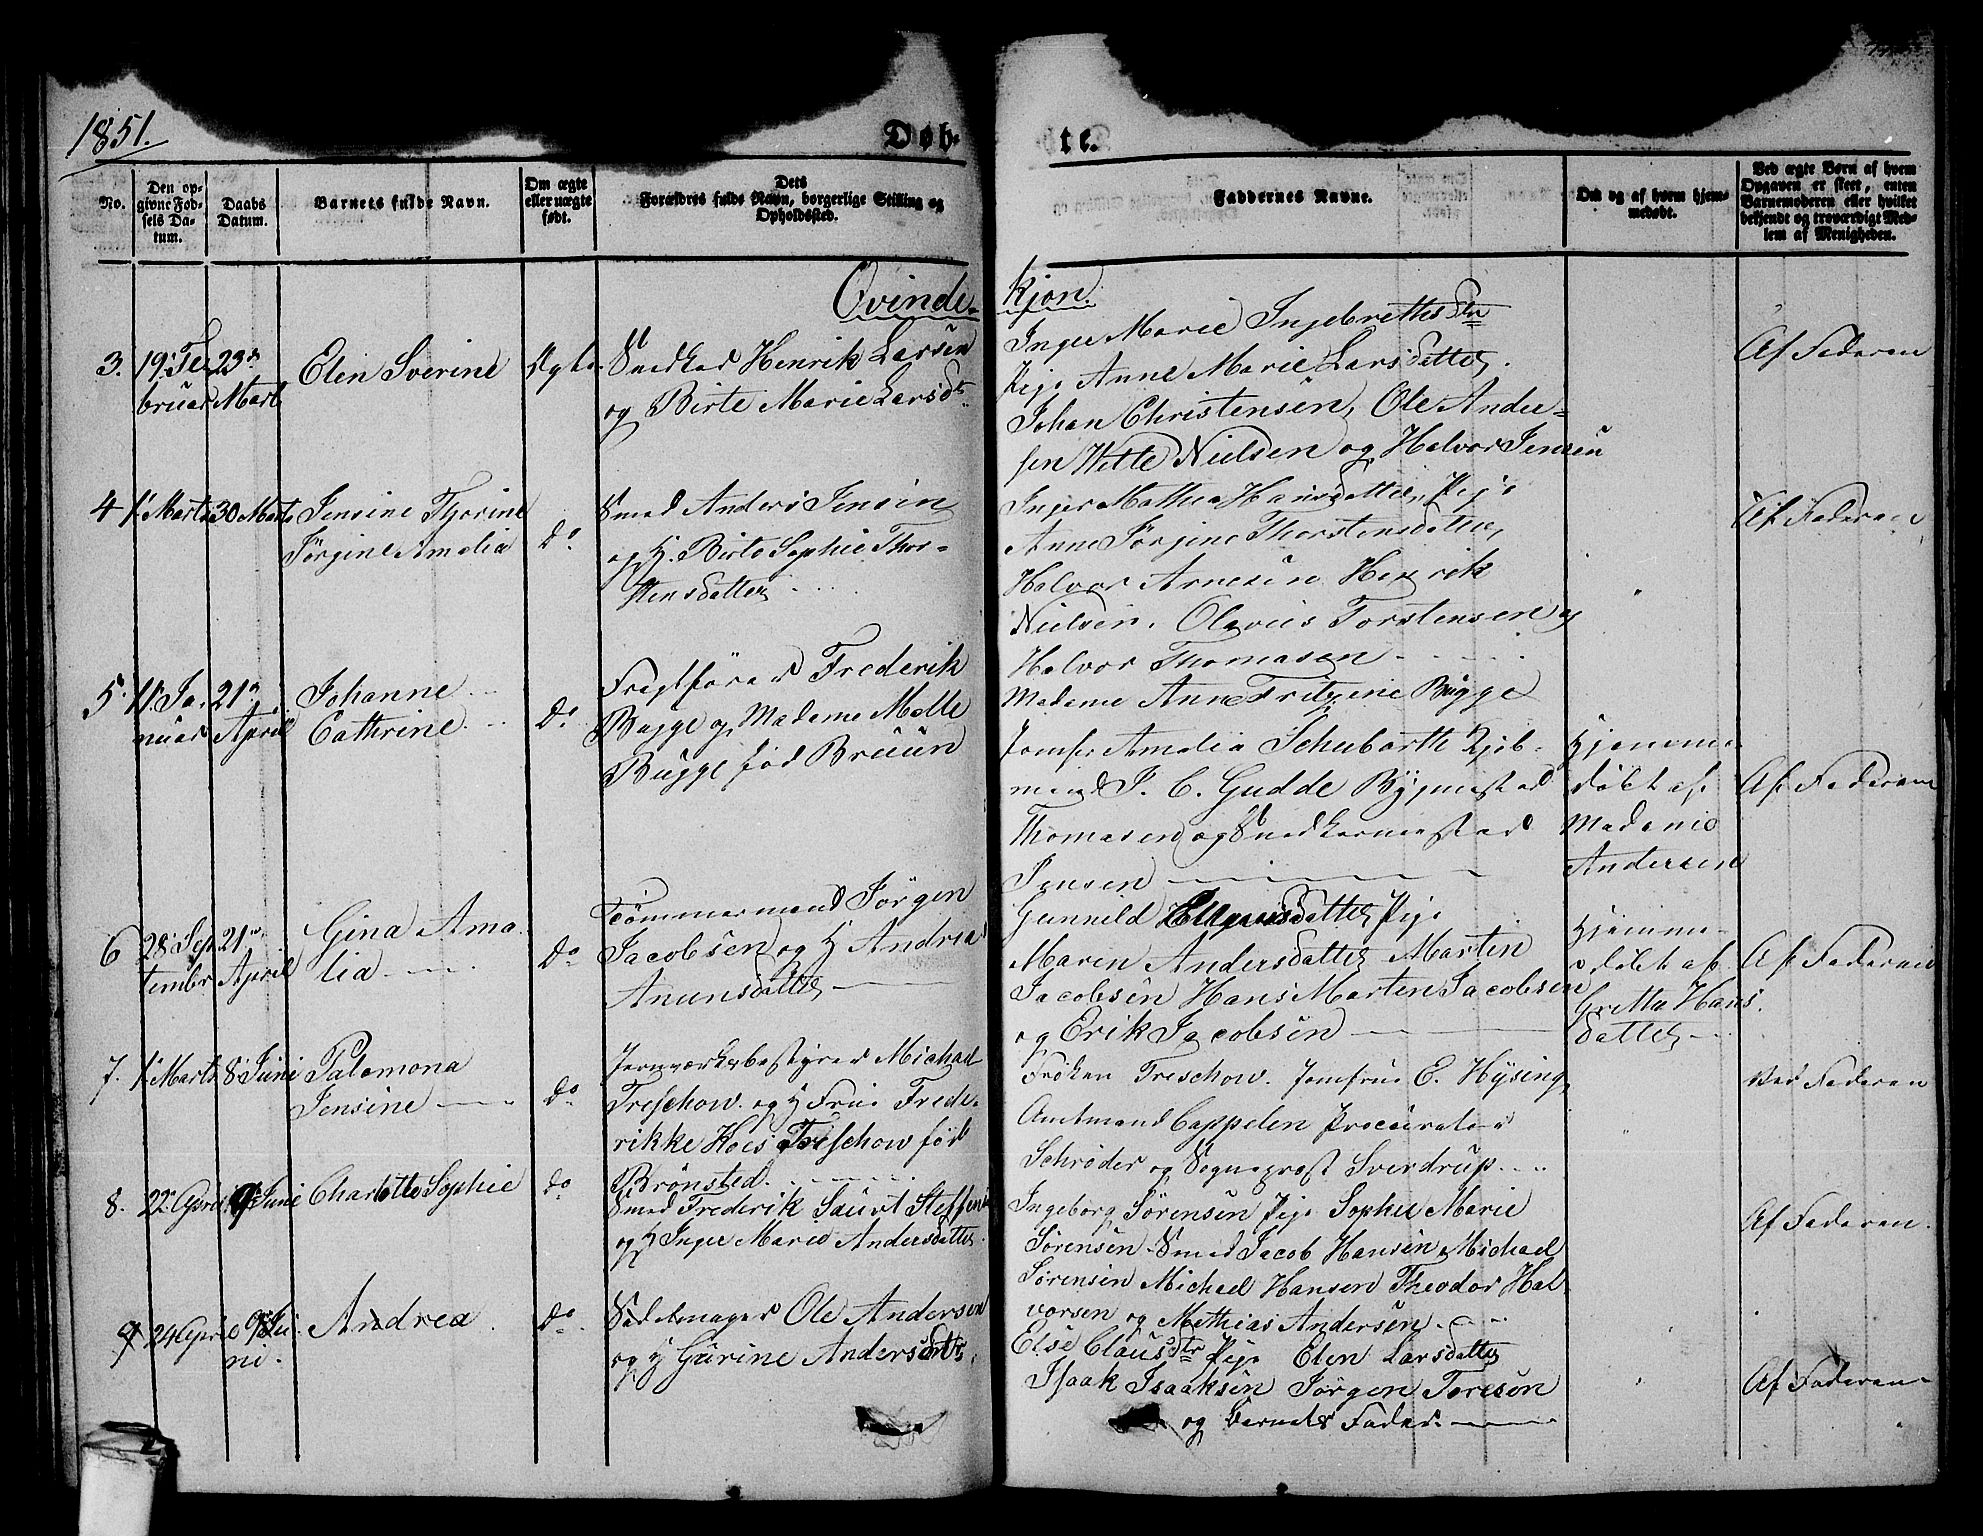 1851.
Døb-
te.
No.
Den op-
givne Fød-
sels Da-
tum.
Daabs
Datum.
Barnets fulde Navn.
Om ægte
eller uægte
født.
Dets
Forældres fulde Navn, borgerlige Stilling og
Opholdssted.
Faddernes Navne.
Om og af hvem hjem-
medøbt.
Ved ægte Børn af hvem
Opgaven er skeet, enten
Barnemoderen eller hvilket
bekjendt og troværdigt Med-
lem af Menigheden.
Qvinde-
kjøn.
3.
19. Fe-
bruar
23de
Marts
Elen Sverine
Ægte
Snedker Henrik Larsen
og Birte Marie Larsdtr
Inger Marie Ingebrettesdtr
Pige Anne Marie Larsdatter.
Johan Christensen, Ole Ander-
sen Nielsen og Halvor Jensen
Af Faderen
4
1. Marts
30 Marts
Jensine Tjorine
Jørgine Amalia
do
Smed Anders Jensen
og H. Birte Sophie Thor-
stensdatter
Inger Mathea Hansdatter, Pige
Anne Jørgine Thorstensdatter,
Halvor Arnesen Henrik
Nielsen, Olavus Torstensen og
Halvor Thomasen
Af Faderen
5.
11. Ja-
nuar
21de
April
Johanne
Cathrine
do
Fragtfører Frederik
Bugge og Madame Malle
Bugge fød Bruun
Madame Anne Fritzine Bugge
Jomfr Amalia Schubarth Kjøb-
mand J. C. Gudde Bygmester
Thomasen og Snedkermester
Jensen
Hjemme-
døbt af
Madame
Andersen
Af Faderen
6
28. Sep-
tembr
21de
April
Gina Ama-
lia
do
Tømmermand Jørgen
Jacobsen og H Andrea
Anunsdatter
Gunnild Ellefsdatter Pige
Maren Andersdatter Marten
Jacobsen Hans Marten Jacobsen
og Erik Jacobsen
Hjemme-
døbt af
Gretta Hans
datter
Af Faderen
7.
1. Marts
8. Juni
Palemona
Jensine
do
Jernværksbestyrer Michael
Treschow og H Frue Frede-
rikke Hoes Treschow fød
Brønsted.
Frøken Treschow. Jomfrue E. Hysing,
Amtmand Cappelen Procurator
Schrøder og Sogneprest Sverdrup
Ved Faderen
8.
22. April
9. Juni
Charlotte Sophie
do
Smed Frederik Laurt Steffens
og H Inger Marie Andersdatter
Ingeborg Sørensen Pige Sophie Marie
Sørensen Smed Jacob Hansen Michael
Sørensen Michael Hansen Theodor Hal-
vorsen og Mathias Andersen
Af Faderen.
9
24 April
9. Ju-
ni.
Andrea
do
Sadelmager Ole Andersen
og H Gurine Andersdtr.
Else Clausdtr Pige Elen Larsdatter
Isaak Isaaksen Jørgen Toresen
og Barnets Fader.
Af Faderen